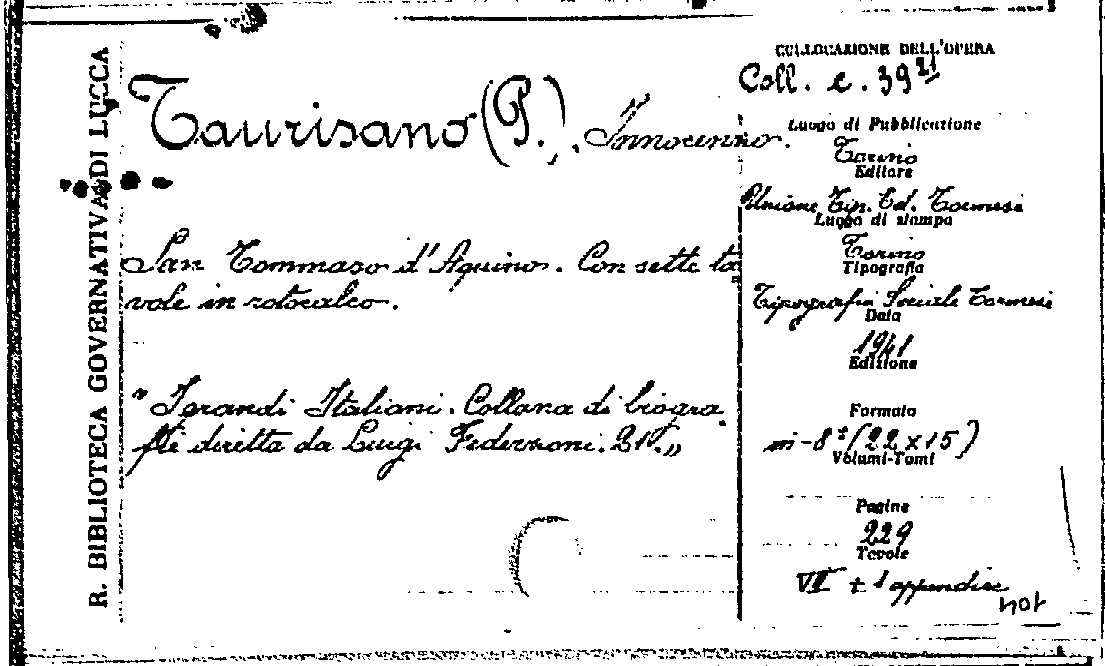 R. BIBLIOTECA GOVERNATIVA DI LUCCA
Taurisano (P.). Innocenzo.
San Tommaso d'Aquino. Con sette ta
vole in rotocalco.
"I grandi Italiani. Collana di biogra
fie diretta da Luigi Federzoni. 21.„
COLLOCAZIONE DELL'OPERA
Coll. c. 39 21
Luogo di Pubblicazione
Torino
Editore
Unione Tip. Ed. Torinese
Luogo di stampa
Torino
Tipografia
Tipografia Sociale Torinese
Data
1941
Edizione
Formato
in-8° (22 x 15)
Volumi-Tomi
Pagine
229
Tavole
VII + 1 appendice
104